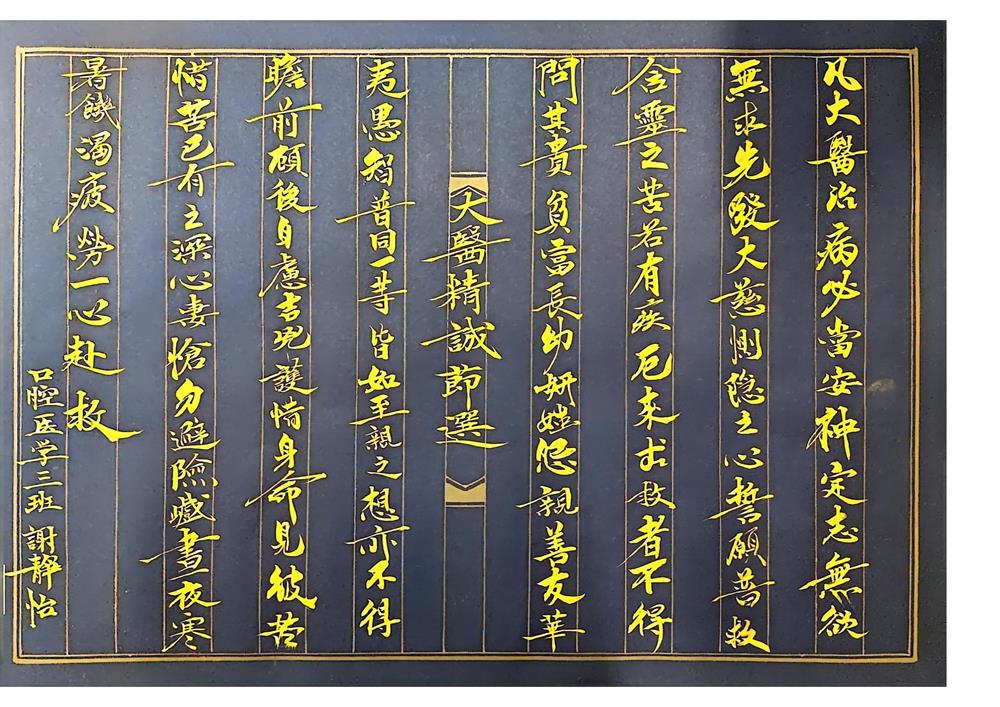 凡大醫治病必當安神定志無欲
無求先發大慈惻隐之心誓願普救
含靈之苦若有疾厄来求救者不得
問其貴貧富長幼妍媸怨親善友華
大醫精誠節選
夷愚智普同一等皆如至親之想亦不得
瞻前顧後自慮吉兇護惜身命見彼苦
惜苦已有之深心凄愴勿避險巇晝夜寒
暑饑渴疲勞一心赴救
口腔医学三班 謝靜怡